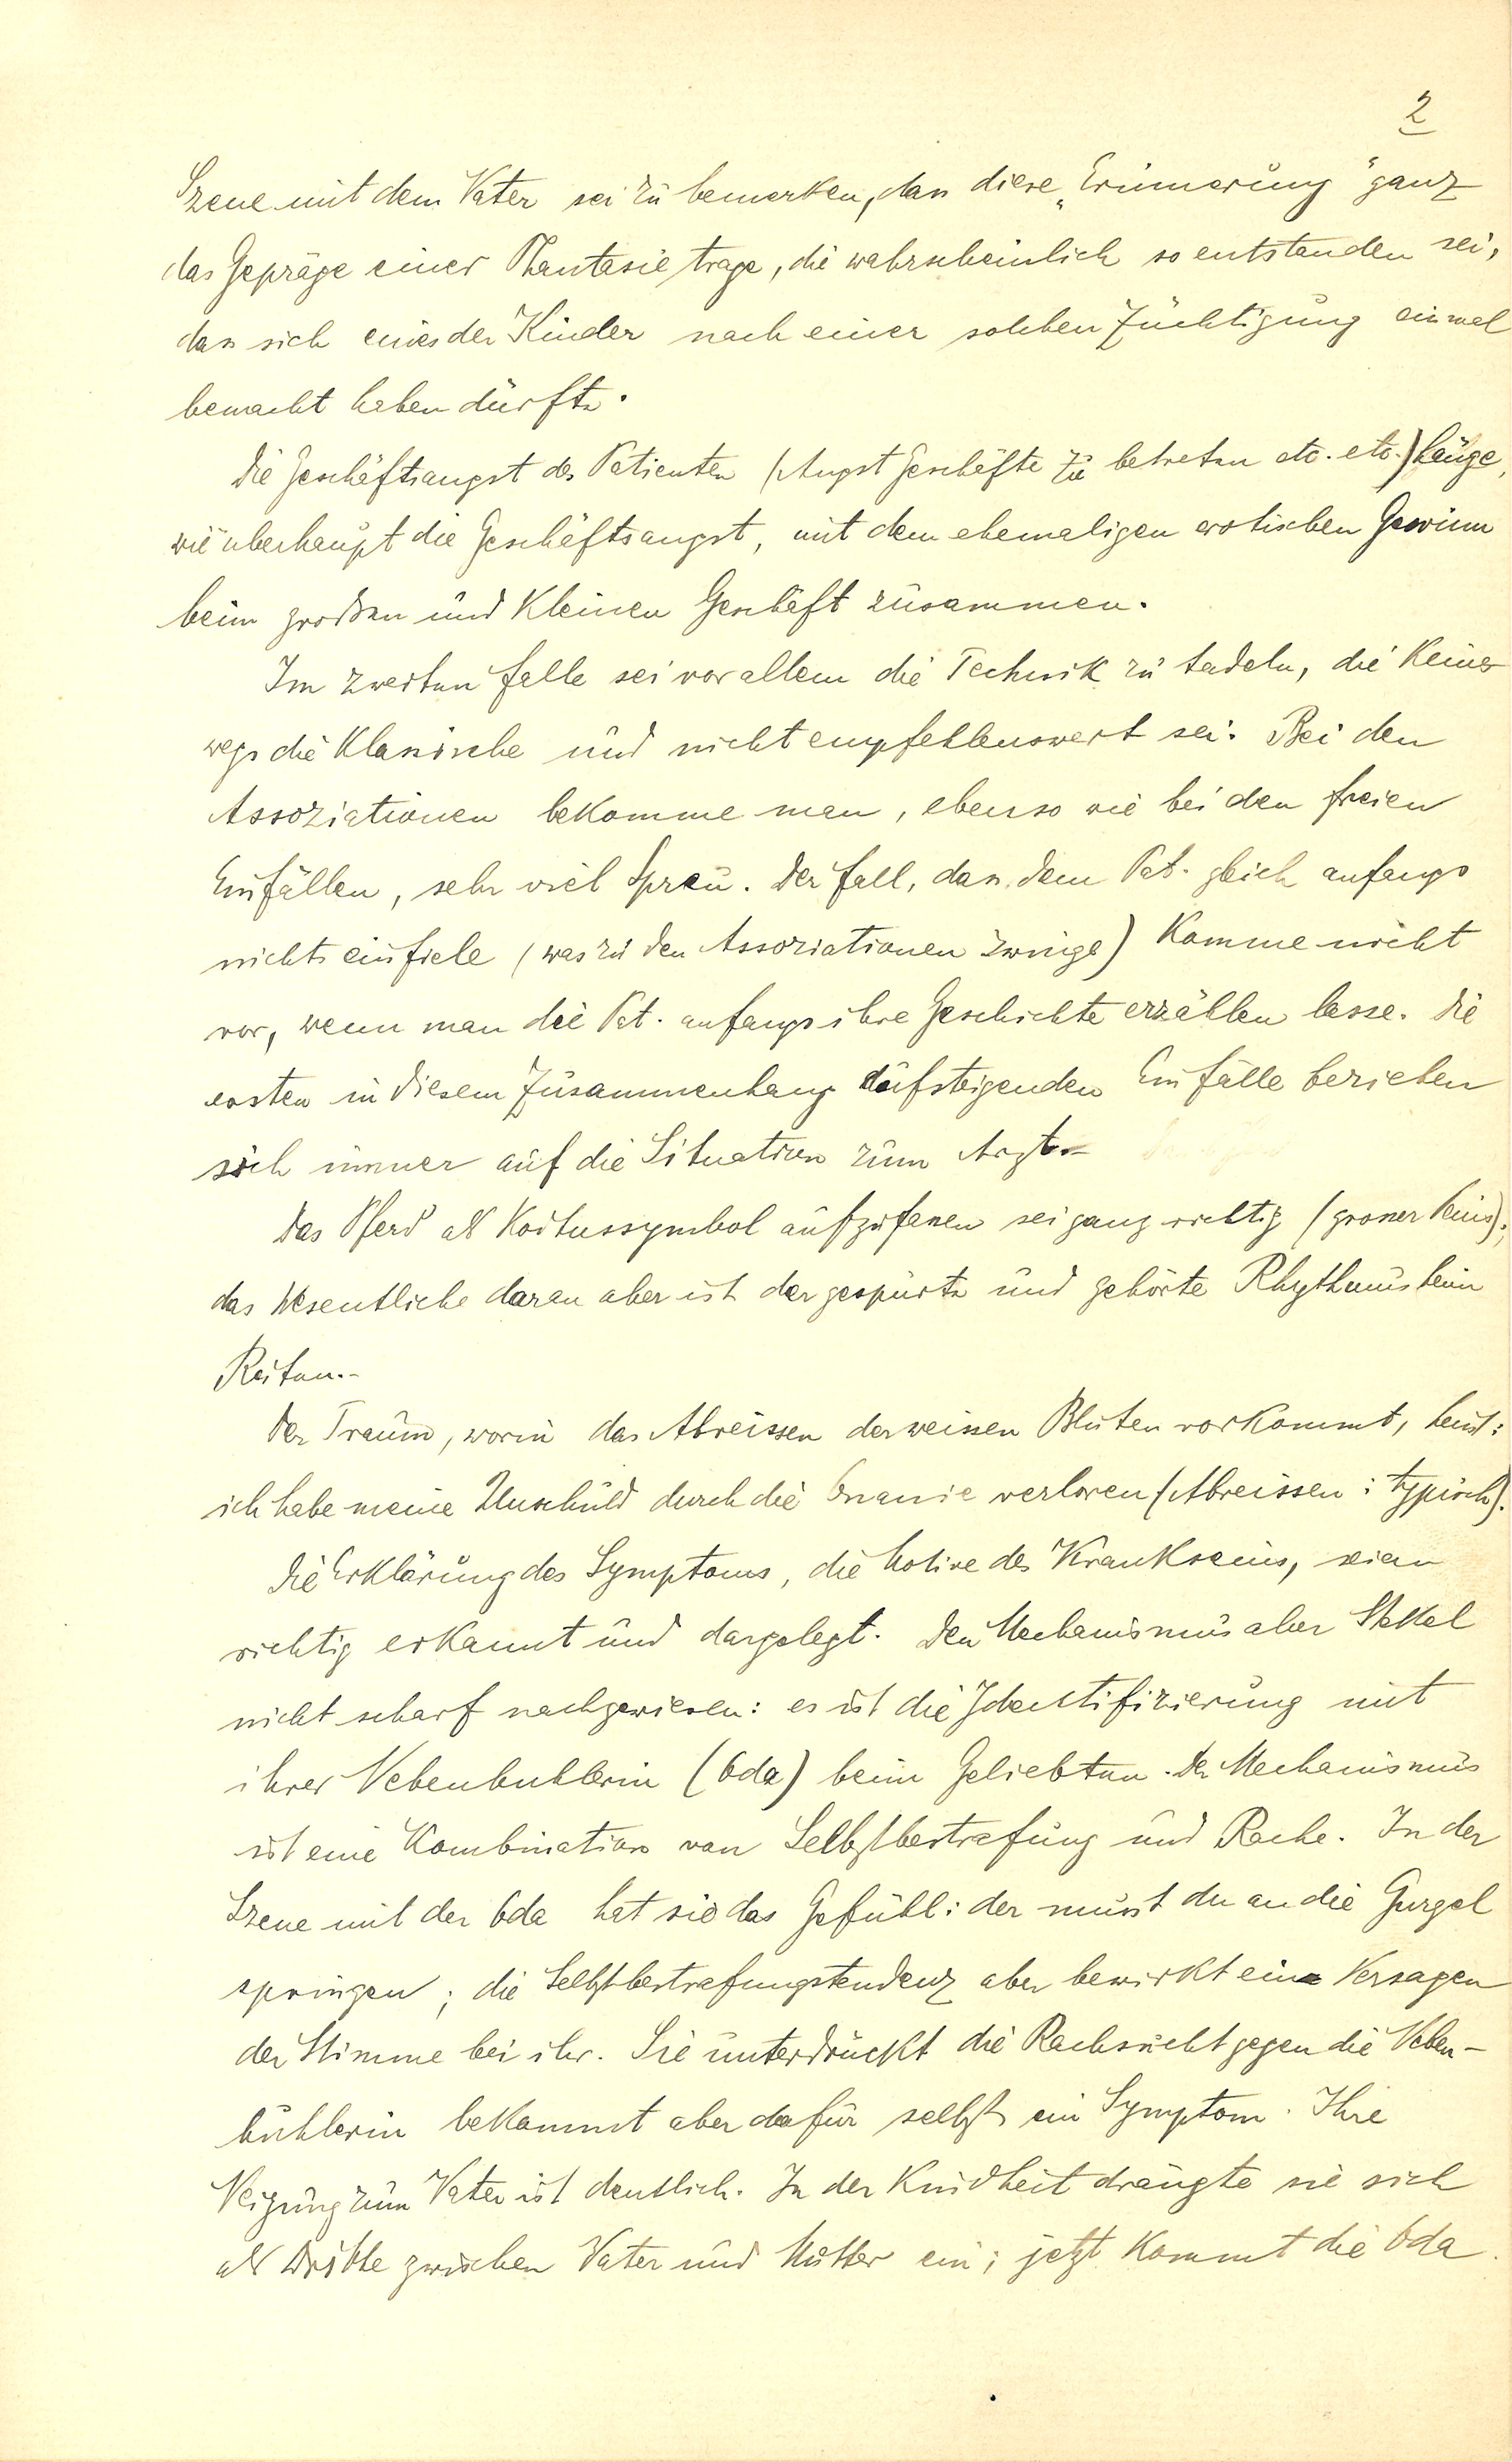 2
Szene mit dem Vater sei zu bemerken, dass diese „Erinnerung“ ganz
das Gepräge einer Phantasie trage, die wahrscheinlich so entstanden sei,
dass sich eines der Kinder nach einer solchen Züchtigung einmal
bemacht haben dürfte.
Die Geschäftsangst des Patienten (Angst Geschäfte zu betreten etc. etc.) hänge,
wie überhaupt die Geschäftsangst, mit dem ehemaligen erotischen Gewinn
beim großen und kleinen Geschäft zusammen.
Im zweiten Falle sei vor allem die Technik zu tadeln, die keines-
wegs die klassische und nicht empfehlenswert sei. Bei den
Assoziationen bekomme man, ebenso wie bei den freien
Einfällen, sehr viel Spreu. Der Fall, dass dem Pat. gleich anfangs
nichts einfiele (was zu den Assoziationen zwinge) komme nicht
vor, wenn man die Pat. anfangs ihre Geschichte erzählen lasse. Die
ersten in diesem Zusammenhang aufsteigenden Einfälle beziehen
sich immer auf die Situation zum Arzt.-
Das Pferd als Koitussymbol aufzufassen sei ganz richtig (grosser Penis);
das Wesentliche daran aber ist der gespürte und gehörte Rhythmus beim
Reiten.-
Der Traum, worin das Abreissen der weissen Blüten vorkommt, heisst:
ich habe meine Unschuld durch die Onanie verloren (Abreissen: typisch).
Die Erklärung des Symptoms, die Motive des Krankseins, seien
richtig erkannt und dargelegt. Den Mechanismus aber Stekel
nicht scharf nachgewiesen: es ist die Identifizierung mit
ihrer Nebenbuhlerin (Oda) beim Geliebten. Der Mechanismus
ist eine Kombination von Selbstbestrafung und Rache. In der
Szene mit der Oda hat sie das Gefühl: der musst du an die Gurgel
springen; die Selbstbestrafungstendenz aber bewirkt ein Versagen
der Stimme bei ihr. Sie unterdrückt die Rachsucht gegen die Neben-
buhlerin bekommt aber dafür selbst ein Symptom. Ihre
Neigung zum Vater ist deutlich. In der Kindheit drängte sie sich
als Dritte zwischen Vater und Mutter ein; jetzt kommt die Oda